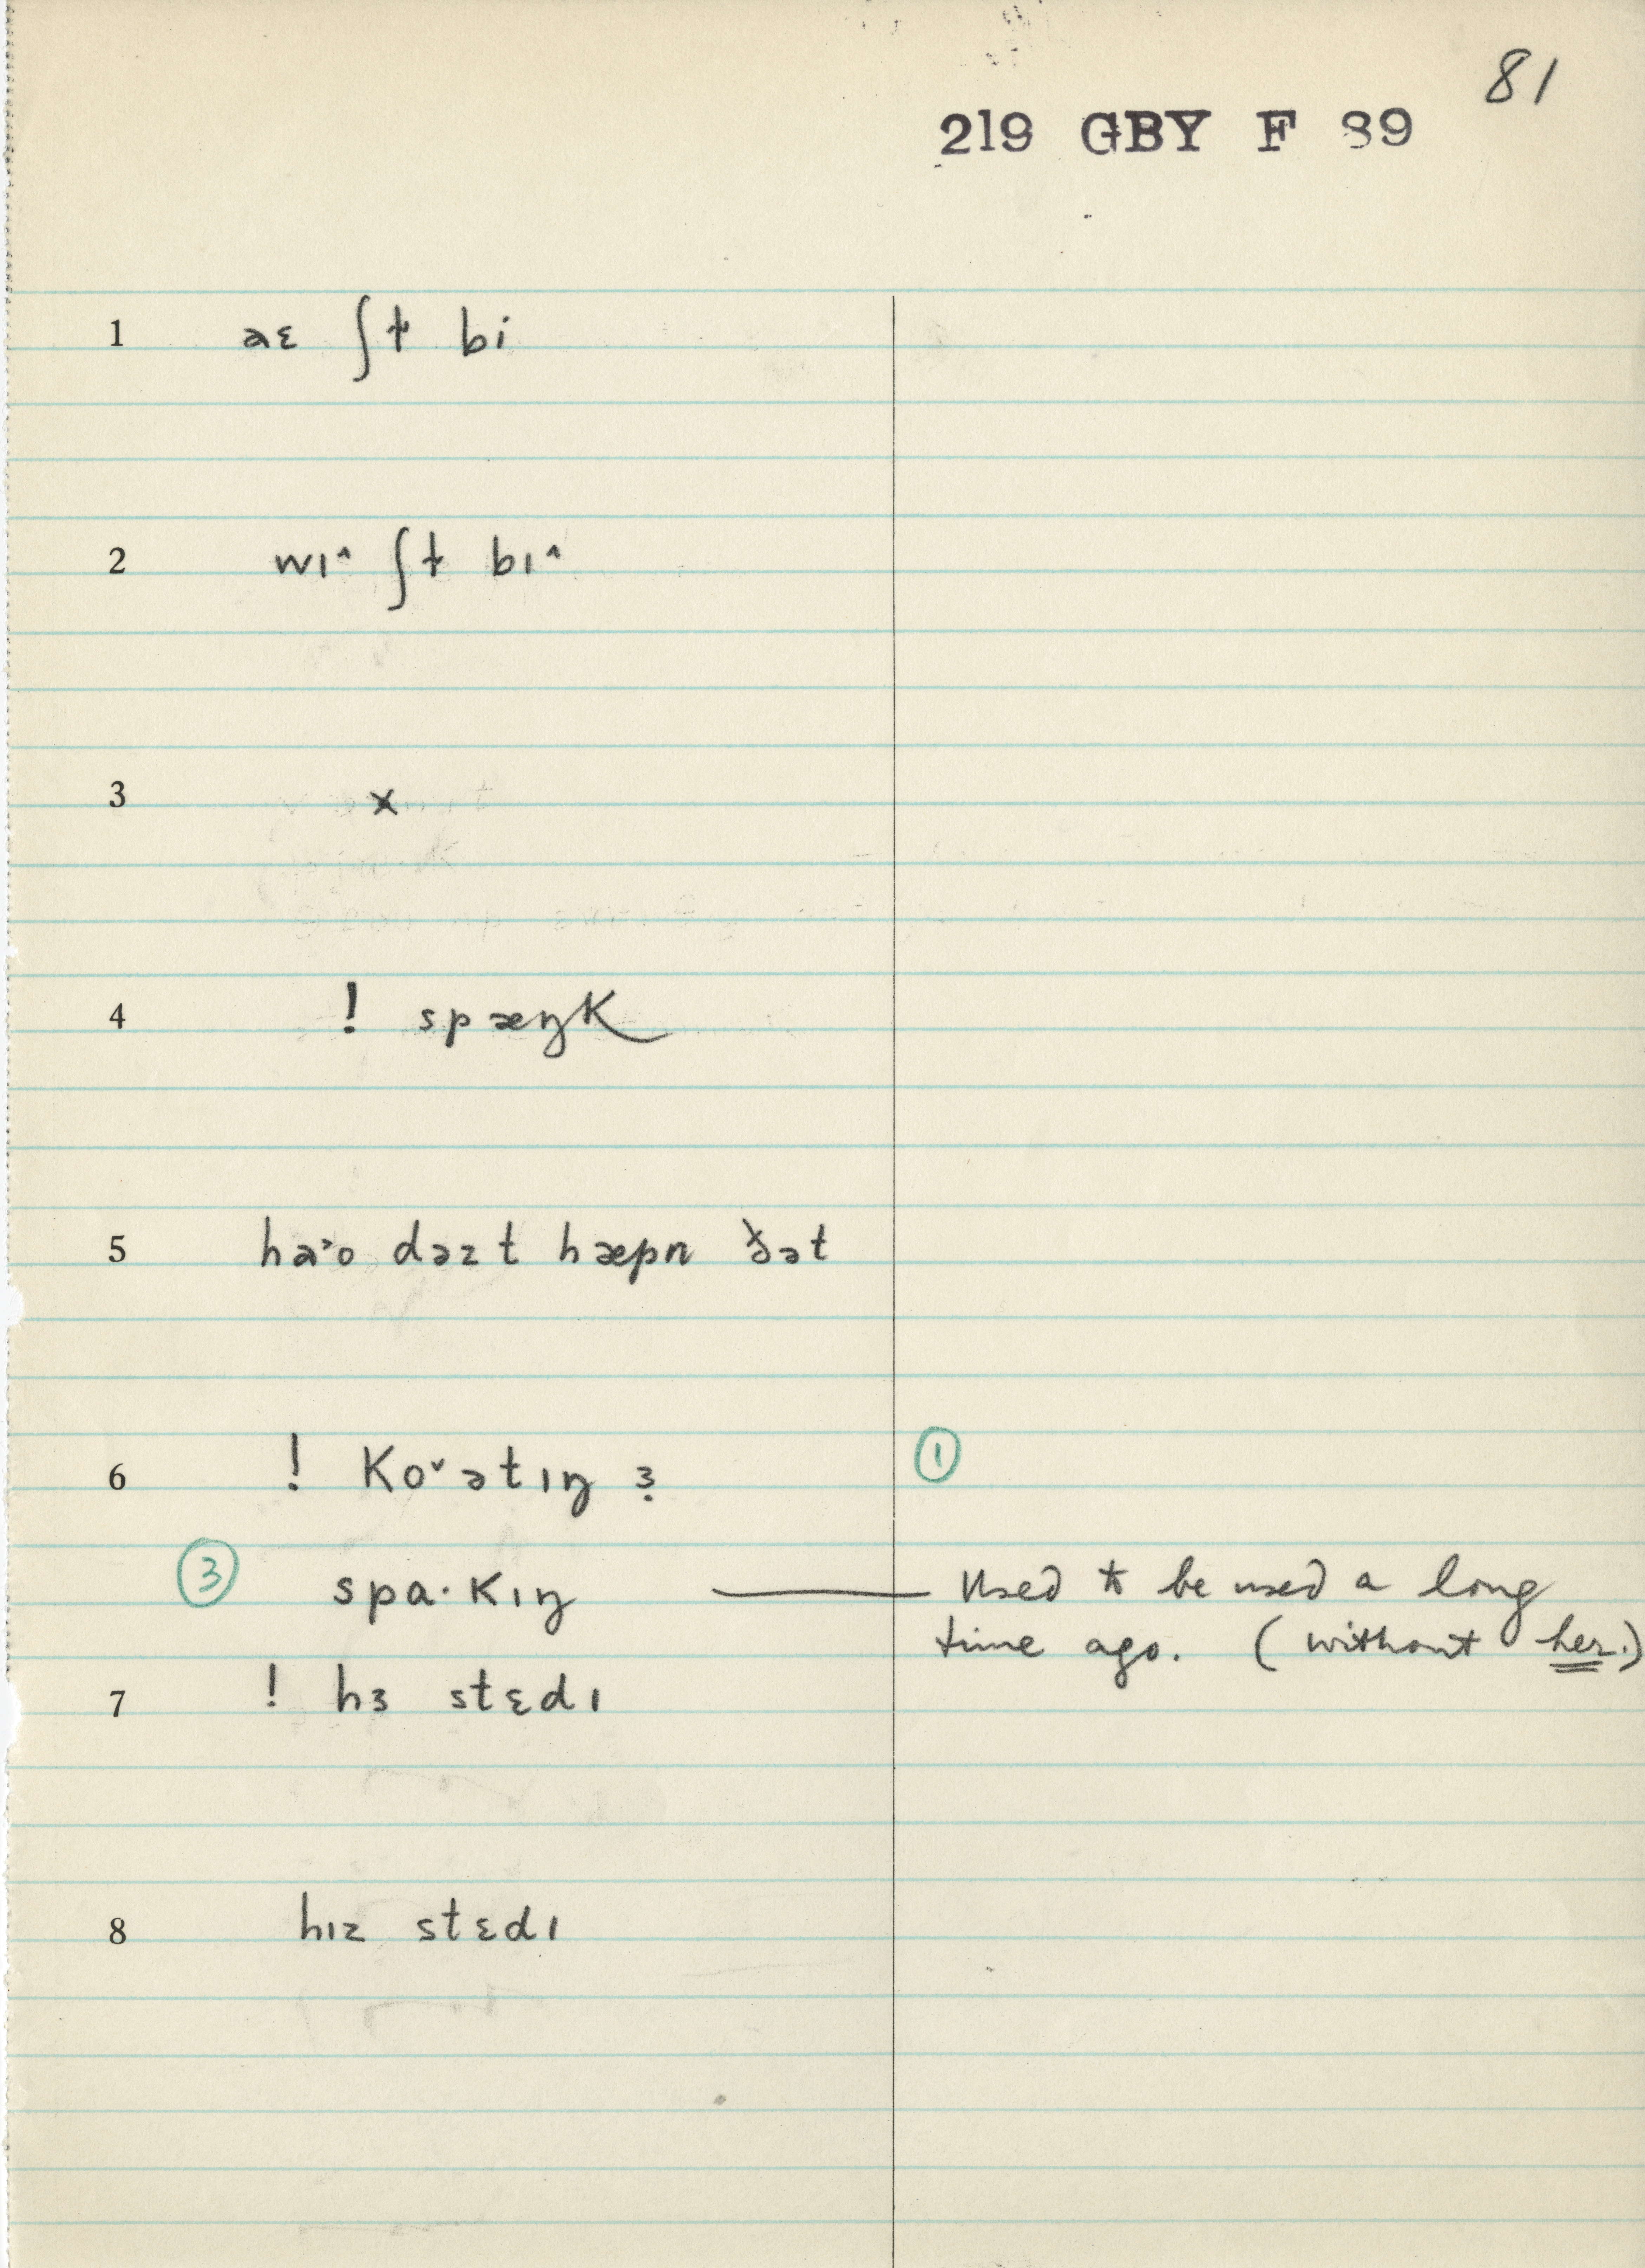 81
219 GBY F 89
1 aɛ ʃɫ bi
2 wɪ^ ʃɫ bɪ^
3 x
4 ! spæŋK
5 ha˃o dəzt hæpn ðət
6 ! Ko˅ətɪŋ ɜ̣ ①
③ spa·Kɪŋ —— Used to be used a long
time ago. (without her.)
7 ! hɜ stɛdɪ
8 hɪz stɛdɪ